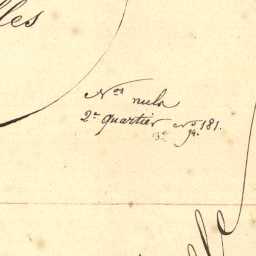 lles
Nos nuls
2e quartier nos 181.
3e 94.
elle